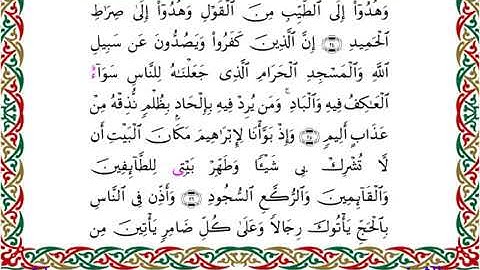 وَهُدُوٓا۟ إِلَى ٱلطَّيِّبِ مِنَ ٱلْقَوْلِ وَهُدُوٓا۟ إِلَىٰ صِرَٰطِ
ٱلْحَمِيدِ ۝٢٤ إِنَّ ٱلَّذِينَ كَفَرُوا۟ وَيَصُدُّونَ عَن سَبِيلِ
ٱللَّهِ وَٱلْمَسْجِدِ ٱلْحَرَامِ ٱلَّذِى جَعَلْنَٰهُ لِلنَّاسِ سَوَآءً
ٱلْعَٰكِفُ فِيهِ وَٱلْبَادِ ۚ وَمَن يُرِدْ فِيهِ بِإِلْحَادٍۭ بِظُلْمٍ نُّذِقْهُ مِنْ
عَذَابٍ أَلِيمٍ ۝٢٥ وَإِذْ بَوَّأْنَا لِإِبْرَٰهِيمَ مَكَانَ ٱلْبَيْتِ أَن
لَّا تُشْرِكْ بِى شَيْـًٔا وَطَهِّرْ بَيْتِىَ لِلطَّآئِفِينَ
وَٱلْقَآئِمِينَ وَٱلرُّكَّعِ ٱلسُّجُودِ ۝٢٦ وَأَذِّن فِى ٱلنَّاسِ
بِٱلْحَجِّ يَأْتُوكَ رِجَالًا وَعَلَىٰ كُلِّ ضَامِرٍ يَأْتِينَ مِن